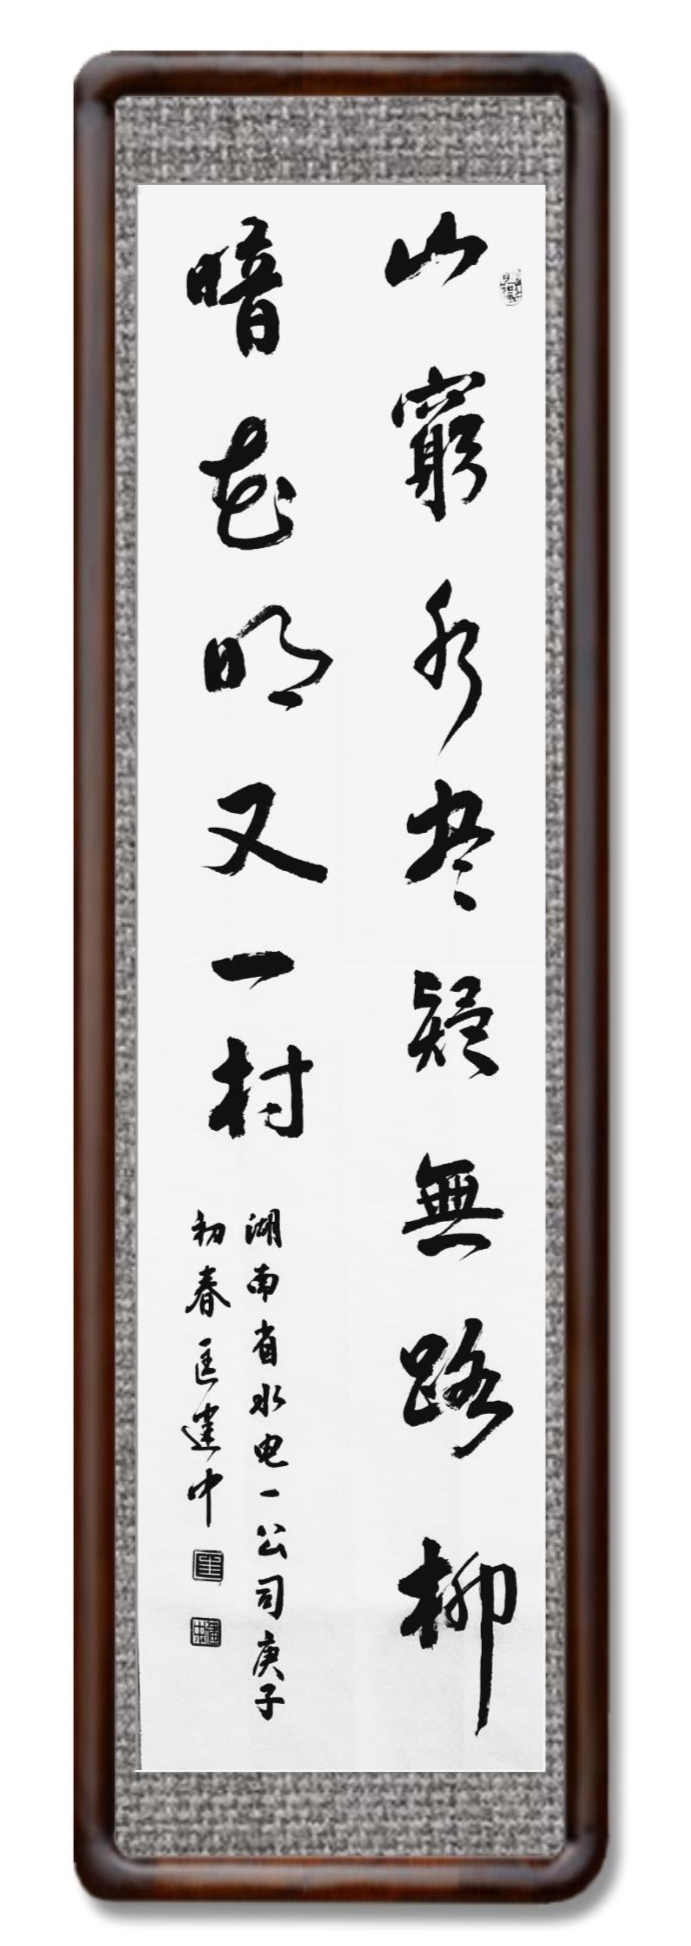 山窮水尽疑無路柳
暗花明又一村
湖南省水电一公司庚子
初春匡建中
匡
建中